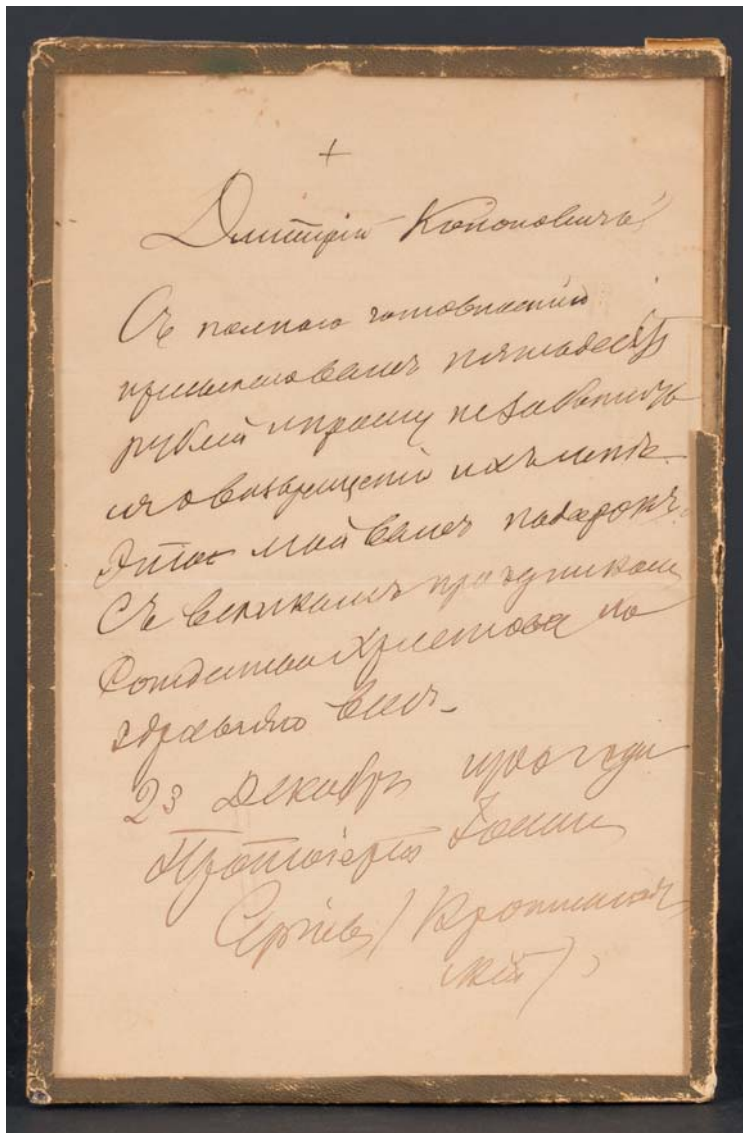 +
Дмитрiй Кононовичъ!
Съ полною готовностiю
присылаю вамъ пятьдесятъ
рублей и прошу не заботить
ся о возвращенiи ихъ мнѣ.
Это мой вамъ подарокъ.
Съ великимъ праздникомъ
Рождества Христова по
здравляю васъ.
23 Декабря года
Протоiерей Iоаннъ
Сергiевъ (Кронштадт
скiй)